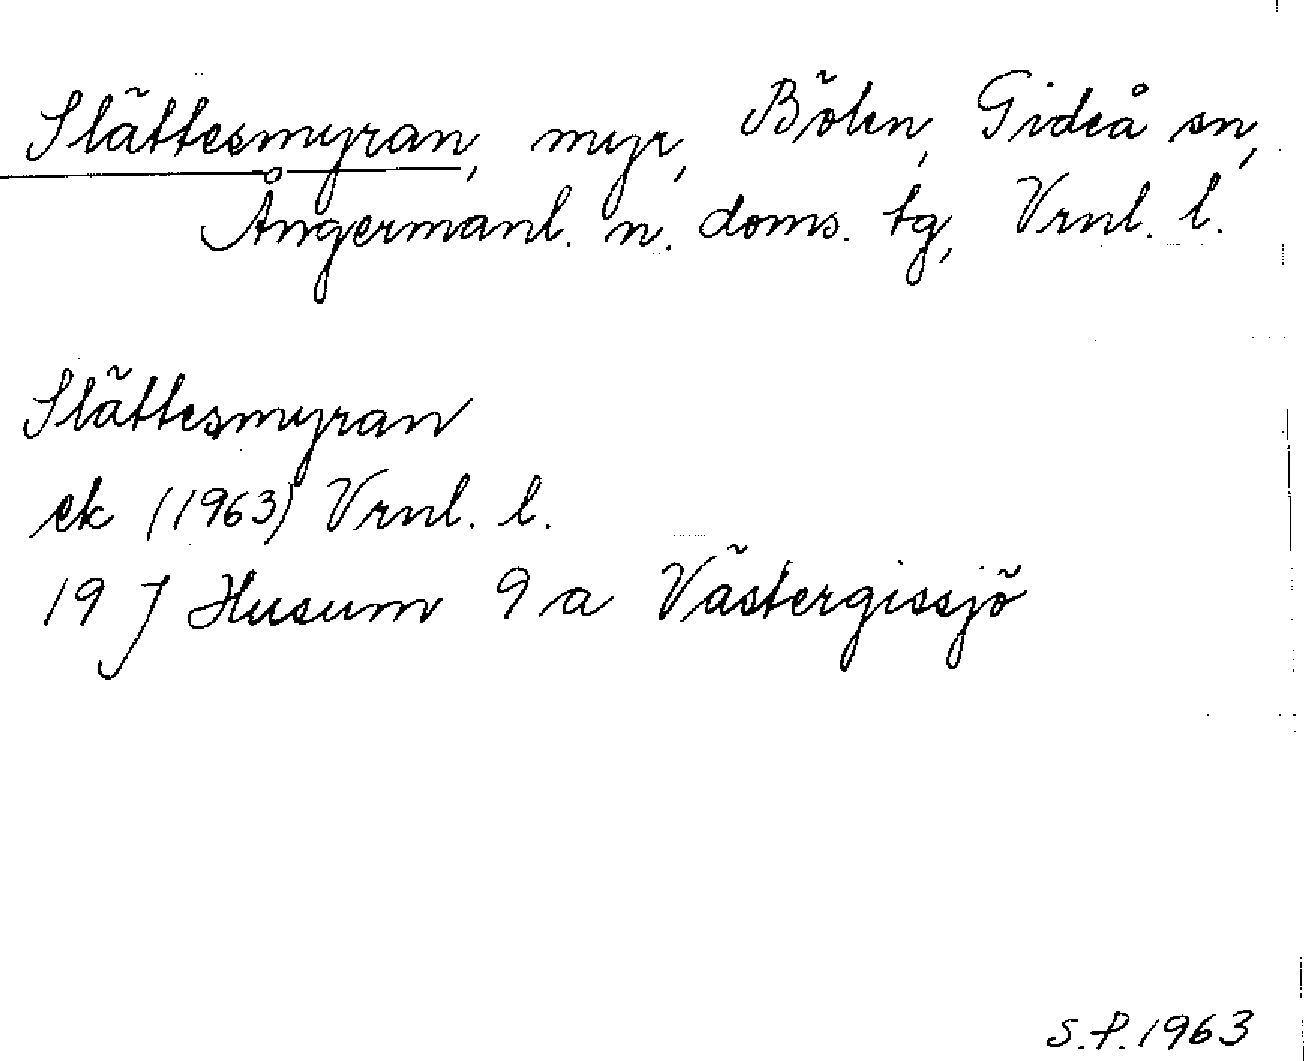 Slättesmyran, myr, Bölen, Gideå sn,
Ångermanl. n. doms. tg, Vrnl. l.
Slättesmyran
ek (1963) Vrnl. l.
19 J Husum 9 a Västergissjö
S.P. 1963